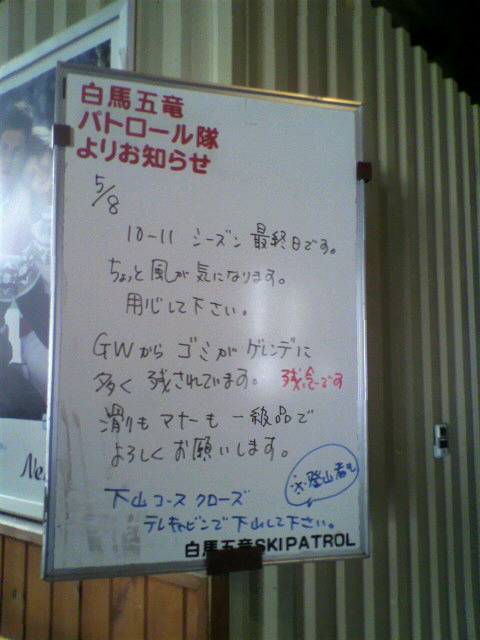 白馬五竜
パトロール隊
よりお知らせ
5/8
10-11 シーズン 最終日です。
ちょっと風が気になります。
用心して下さい。
GWから ゴミが ゲレンデに
多く 残されています。 残念です
滑りも マナーも 一級品で
よろしく お願いします。
※登山者も
下山コース クローズ
テレキャビンで下山して下さい。
白馬五竜SKI PATROL
Ne